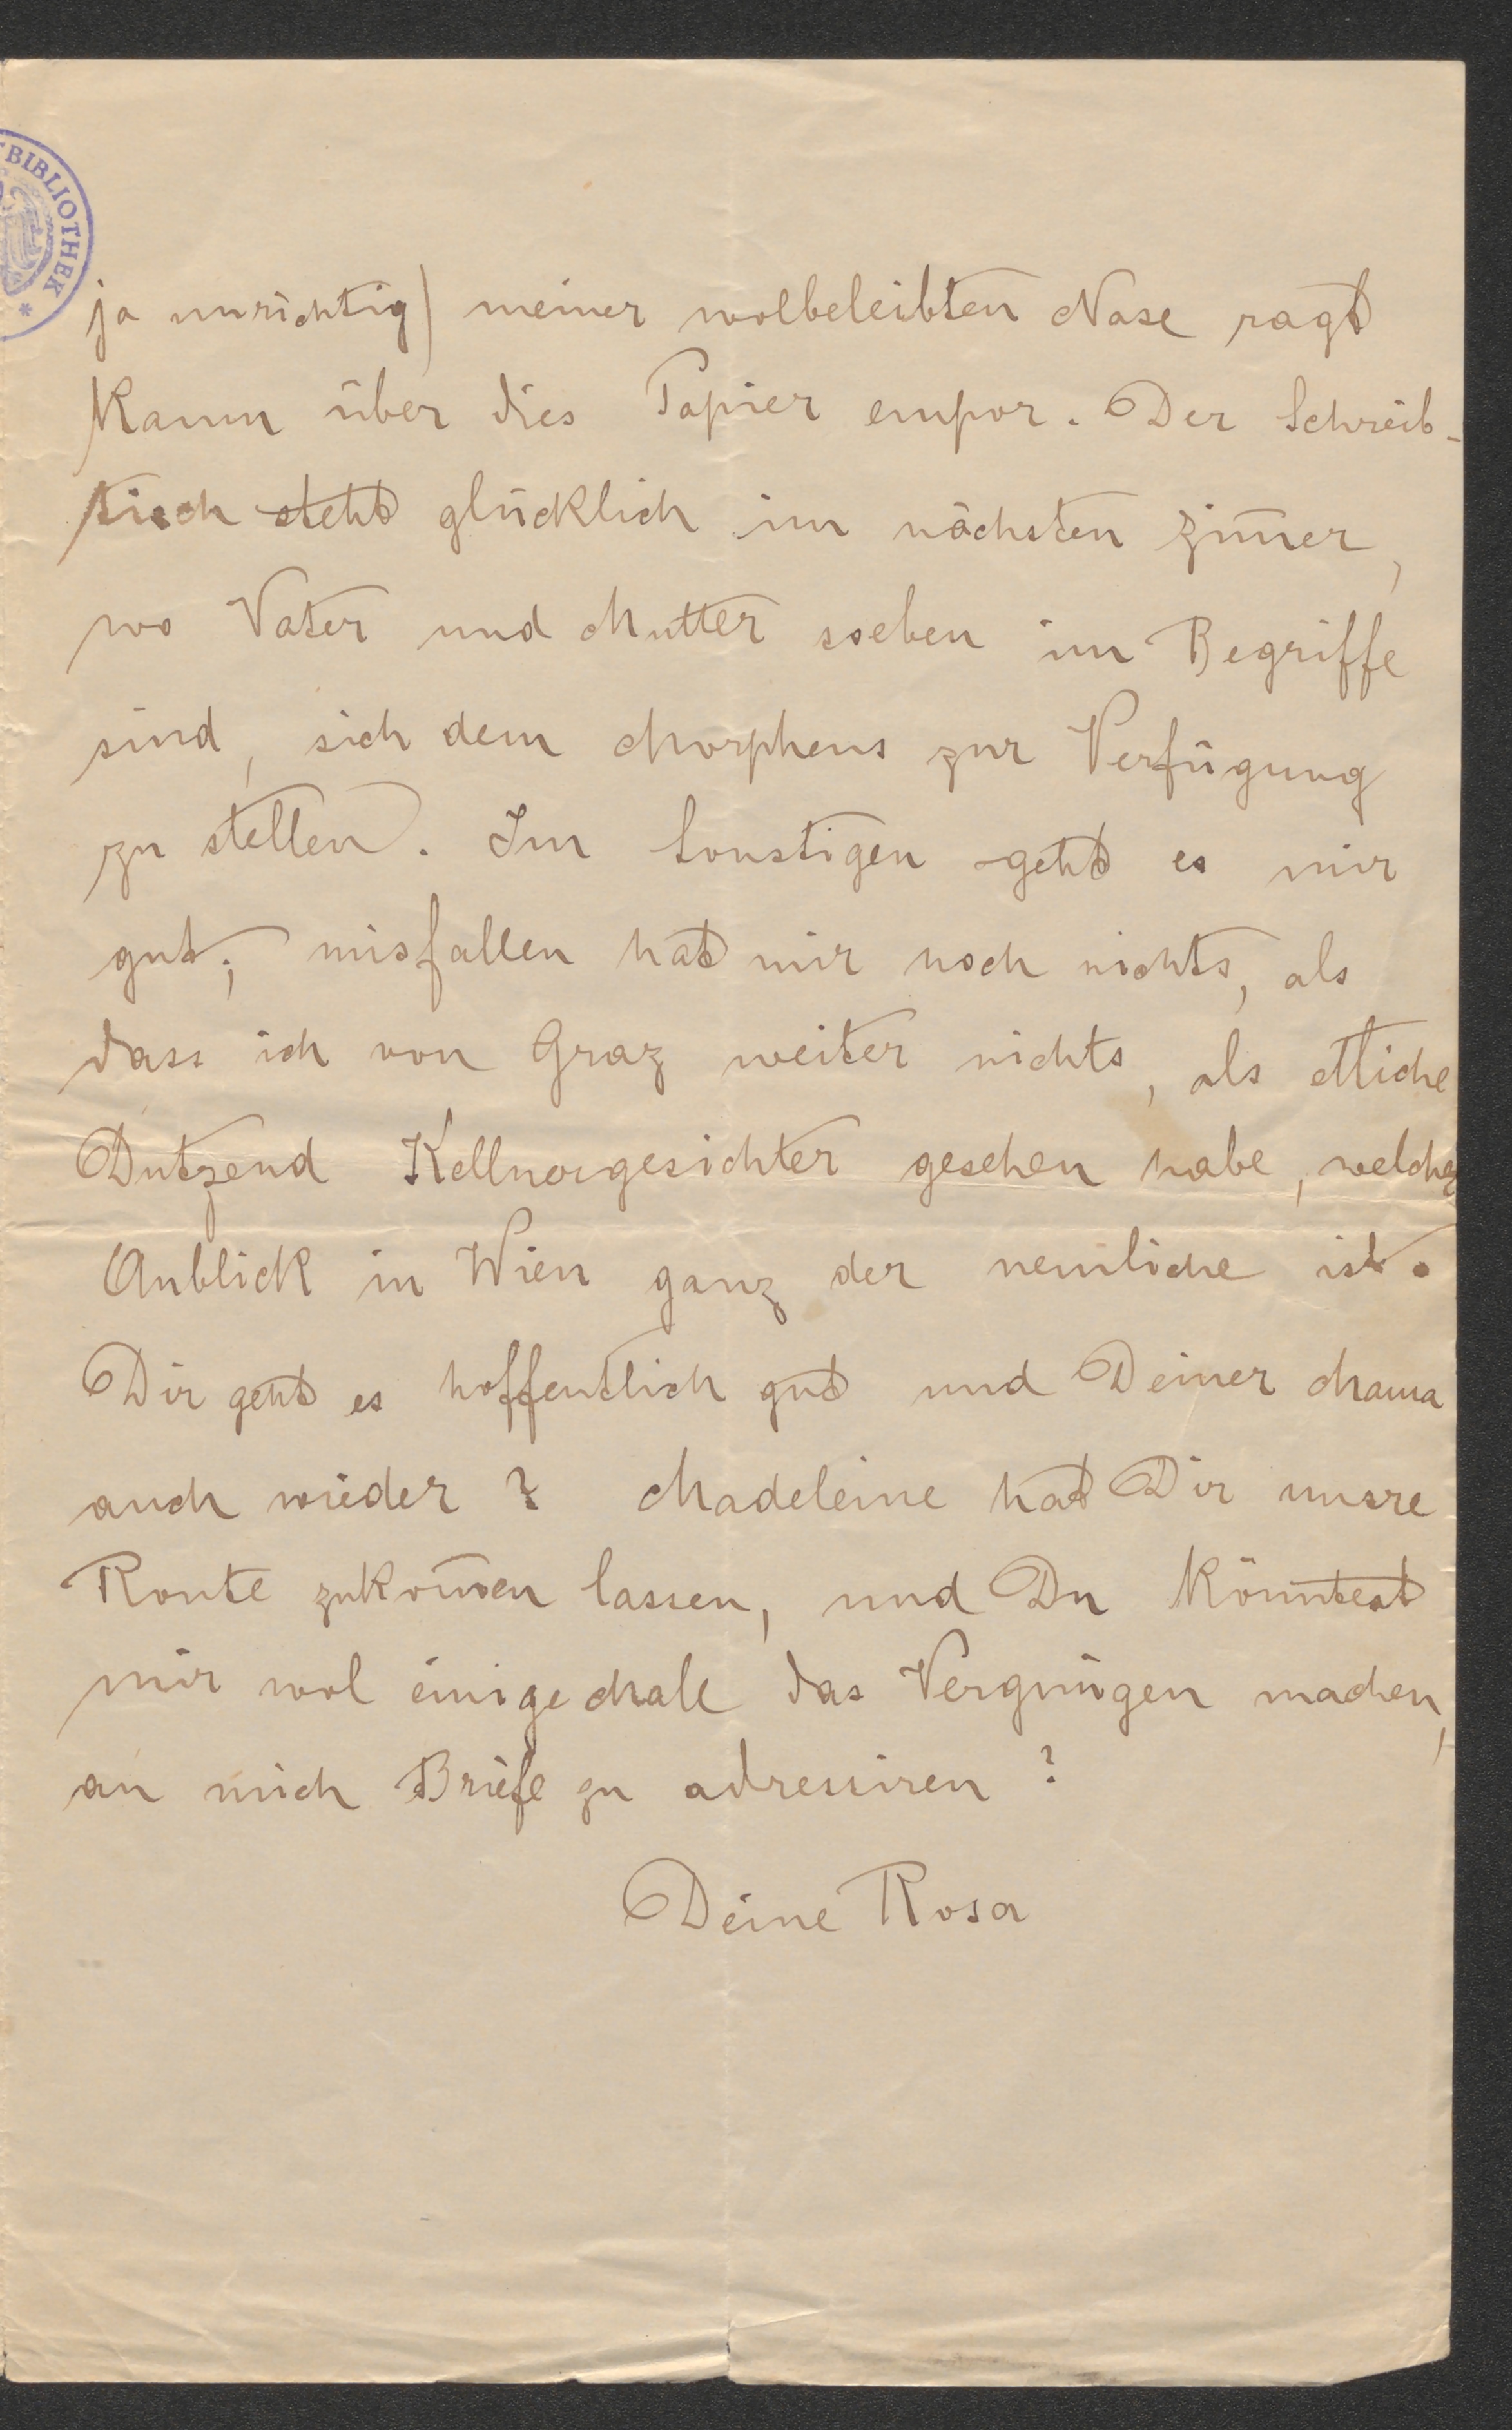 BIBLIOTHEK *
ja unrichtig) meiner wolbeleibten Nase ragt
kaum über dies Papier empor. Der Schreib-
tisch steht glücklich im nächsten Zim̅er,
wo Vater und Mutter soeben im Begriffe
sind, sich dem Morpheus zur Verfügung
zu stellen. Im Sonstigen geht es mir
gut; misfallen hat mir noch nichts, als
dass ich von Graz weiter nichts, als etliche
Dutzend Kellnergesichter gesehen habe, welcher
Anblick in Wien ganz der nemliche ist.
Dir geht es hoffentlich gut und Deiner Mama
auch wieder? Madeleine hat Dir unsre
Route zukom̅en lassen, und Du könntest
mir wol einige Male das Vergnügen machen,
an mich Briefe zu adressiren?
Deine Rosa